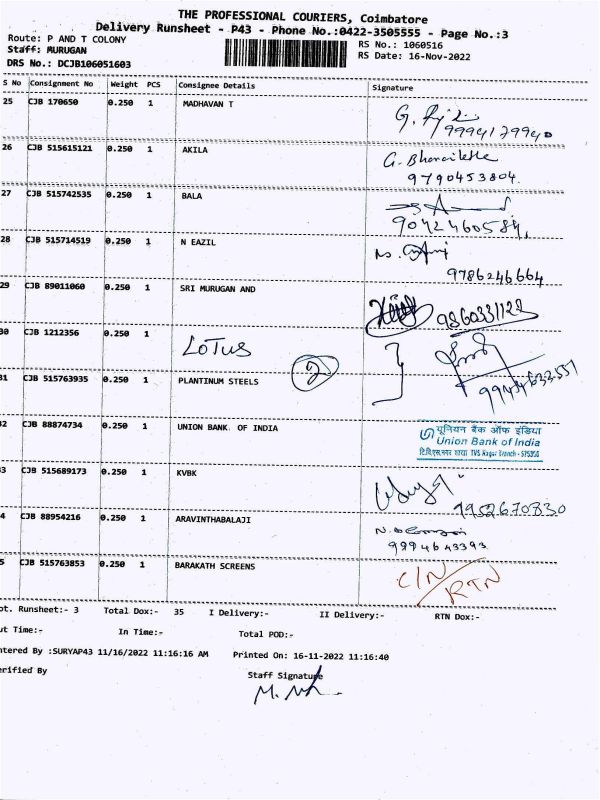 THE PROFESSIONAL COURIERS, Coimbatore
Delivery Runsheet - P43 - Phone No.:0422-3505555 - Page No.:3
Route: P AND T COLONY RS No.: 1060516
Staff: MURUGAN RS Date: 16-Nov-2022
DRS No.: DCJB106051603
S No Consignment No Weight PCS Consignee Details Signature
25 CJB 170650 0.250 1 MADHAVAN T
26 CJB 515615121 0.250 1 AKILA
9790453804.
27 CJB 515742535 0.250 1 BALA
9042460584,
28 CJB 515714519 0.250 1 N EAZIL
9786246664
29 CJB 89011060 0.250 1 SRI MURUGAN AND
9360331123
30 CJB 1212356 0.250 1 LOTUS
2
31 CJB 515763935 0.250 1 PLANTINUM STEELS
32 CJB 88874734 0.250 1 UNION BANK OF INDIA
यूनियन बैंक ऑफ इंडिया
Union Bank of India
3 CJB 515689173 0.250 1 KVBK
9952670830
4 CJB 88954216 0.250 1 ARAVINTHABALAJI
9994643393
5 CJB 515763853 0.250 1 BARAKATH SCREENS
C/N
RTN
ot. Runsheet:- 3 Total Dox:- 35 I Delivery:- II Delivery:- RTN Dox:-
ut Time:- In Time:- Total POD:-
ntered By :SURYAP43 11/16/2022 11:16:16 AM Printed On: 16-11-2022 11:16:40
erified By Staff Signature